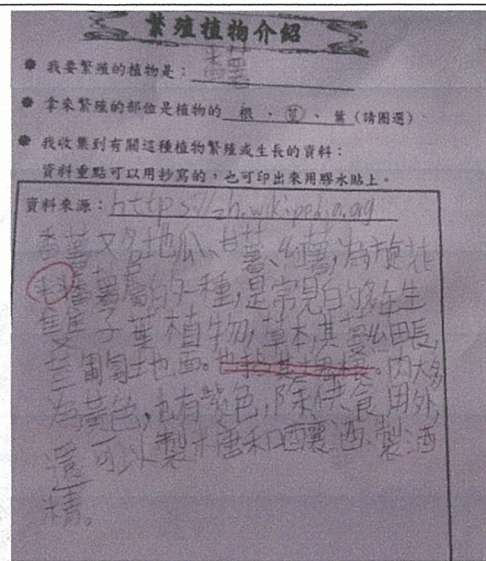 繁殖植物介紹
我要繁殖的植物是：番薯
拿來繁殖的部位是植物的 根 、 莖 、 葉 (請圈選)
我收集到有關這種植物繁殖或生長的資料：
資料重點可以用抄寫的，也可印出來用膠水貼上。
資料來源：https://zh.wikipedia.org
番薯又名地瓜、甘薯、山薯，為旋花
番薯屬的一種，是常見的多年生
雙子葉植物，草本，其蔓細長，
莖匍匐地面。內大多
為黃色，也有紫色，除供食用外，
還可以製糖和釀酒、製酒
精。